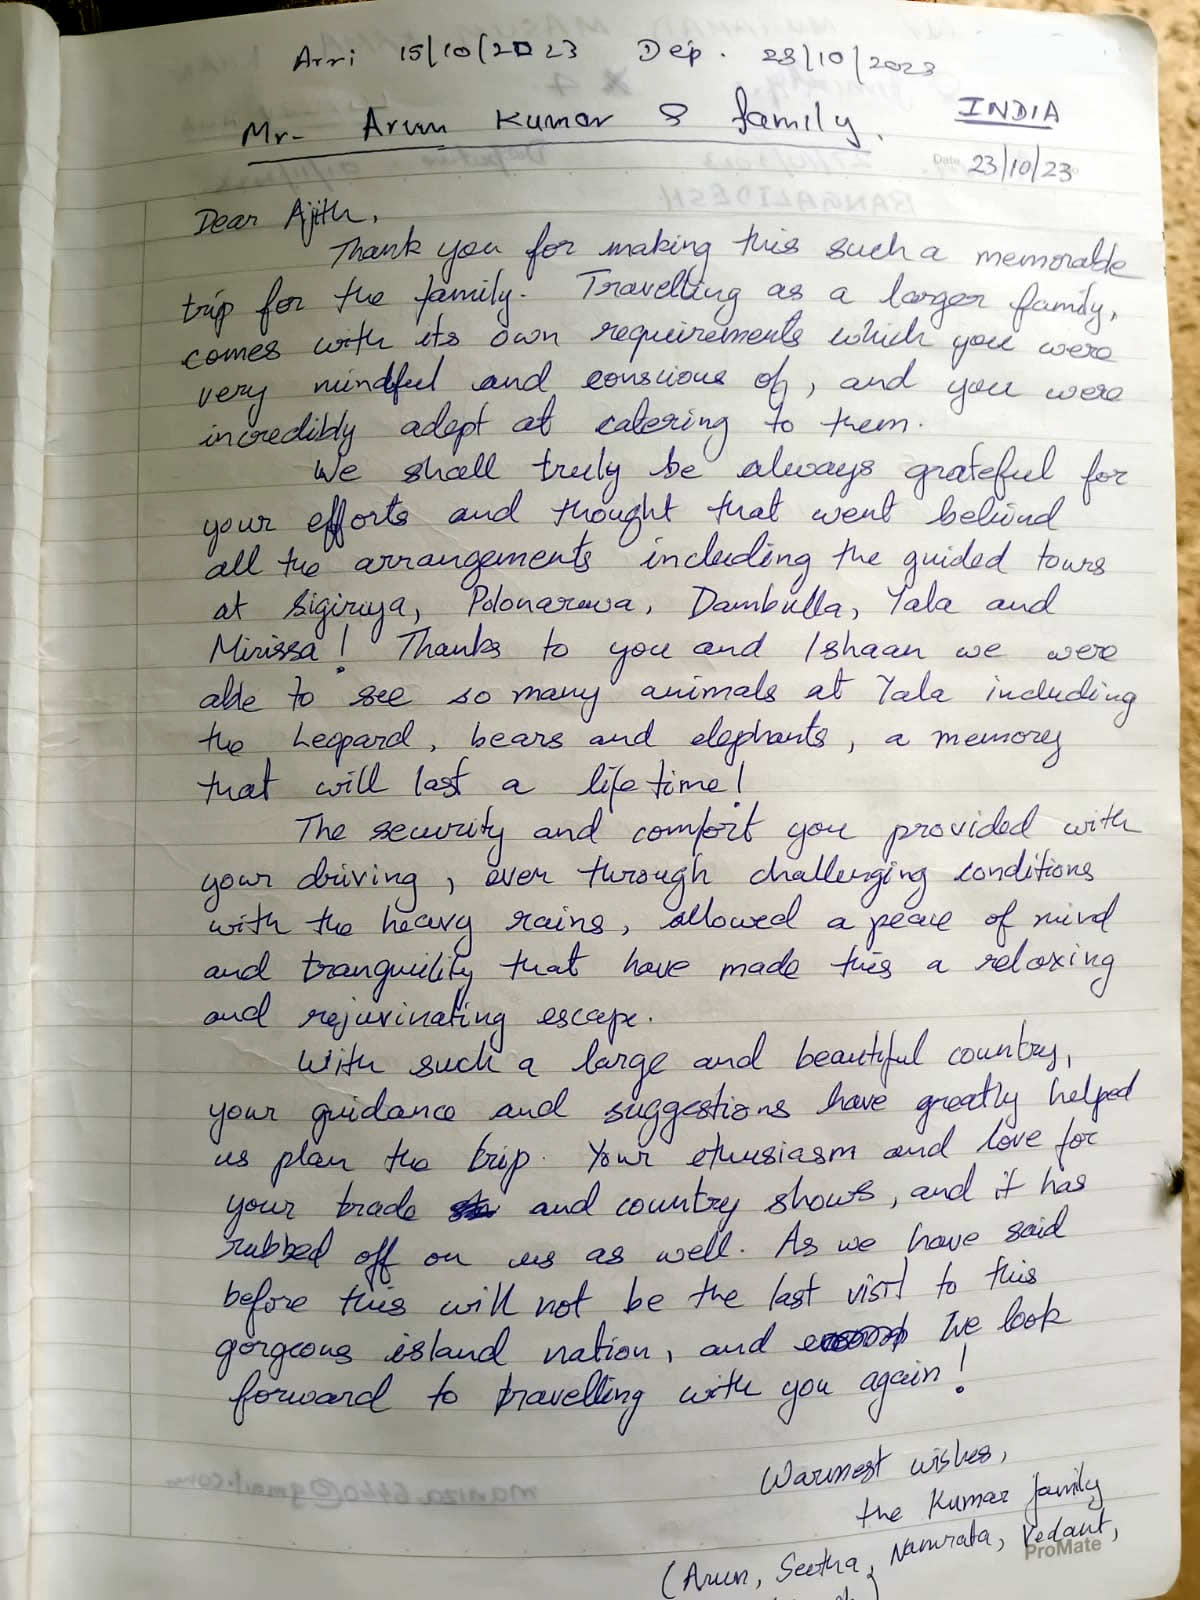 Arri 15/10/2023 Dep. 23/10/2023
Mr. Arun Kumar & family.
INDIA
Date 23/10/23
Dear Ajith,
Thank you for making this such a memorable
trip for the family. Travelling as a larger family,
comes with its own requirements which you were
very mindful and conscious of, and you were
incredibly adept at catering to them.
We shall truly be always grateful for
your efforts and thought that went behind
all the arrangements including the guided tours
at Sigiriya, Polonaruwa, Dambulla, Yala and
Mirissa! Thanks to you and Ishaan we were
able to see so many animals at Yala including
the leopard, bears and elephants, a memory
that will last a life time!
The security and comfort you provided with
your driving, even through challenging conditions
with the heavy rains, allowed a peace of mind
and tranquility that have made this a relaxing
and rejuvinating escape.
With such a large and beautiful country,
your guidance and suggestions have greatly helped
us plan the trip. Your ethusiasm and love for
your trade and country shows, and it has
rubbed off on us as well. As we have said
before this will not be the last visit to this
gorgeous island nation, and we look
forward to travelling with you again!
Warmest wishes,
the Kumar family
(Arun, Seetha, Namrata, Vedant,
ProMate